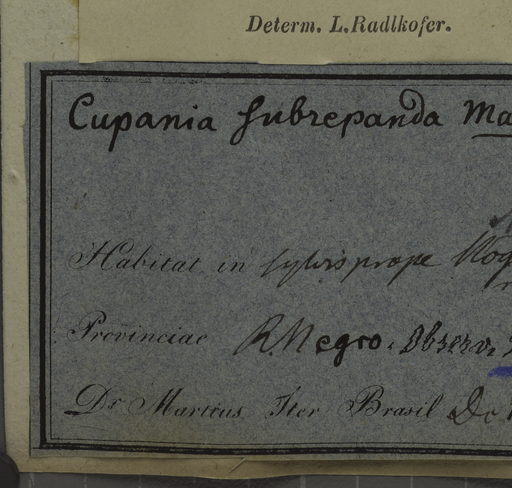 Determ. L.Radlkofer.
Cupania subrepanda Ma
Habitat in sylvis prope
Provinciae R. Negro. Observ.
Dr Martius Iter Brasil De